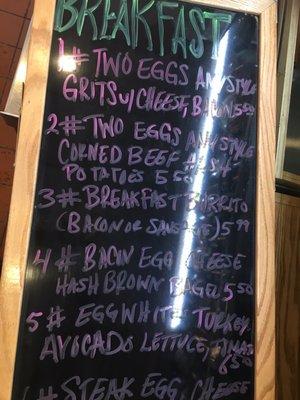 BREAKFAST
1# TWO EGGS ANY STYLE
GRITS W/ CHEESE, BACON 5.50
2# TWO EGGS ANY STYLE
CORNED BEEF HASH
POTATOES 5.50
3# BREAKFAST BURRITO
(BACON OR SAUSAGE) 5.99
4# BACON EGG CHEESE
HASH BROWN BAGEL 5.50
5# EGGWHITE TURKEY
AVOCADO LETTUCE,
6.50
# STEAK EGG, CHEESE